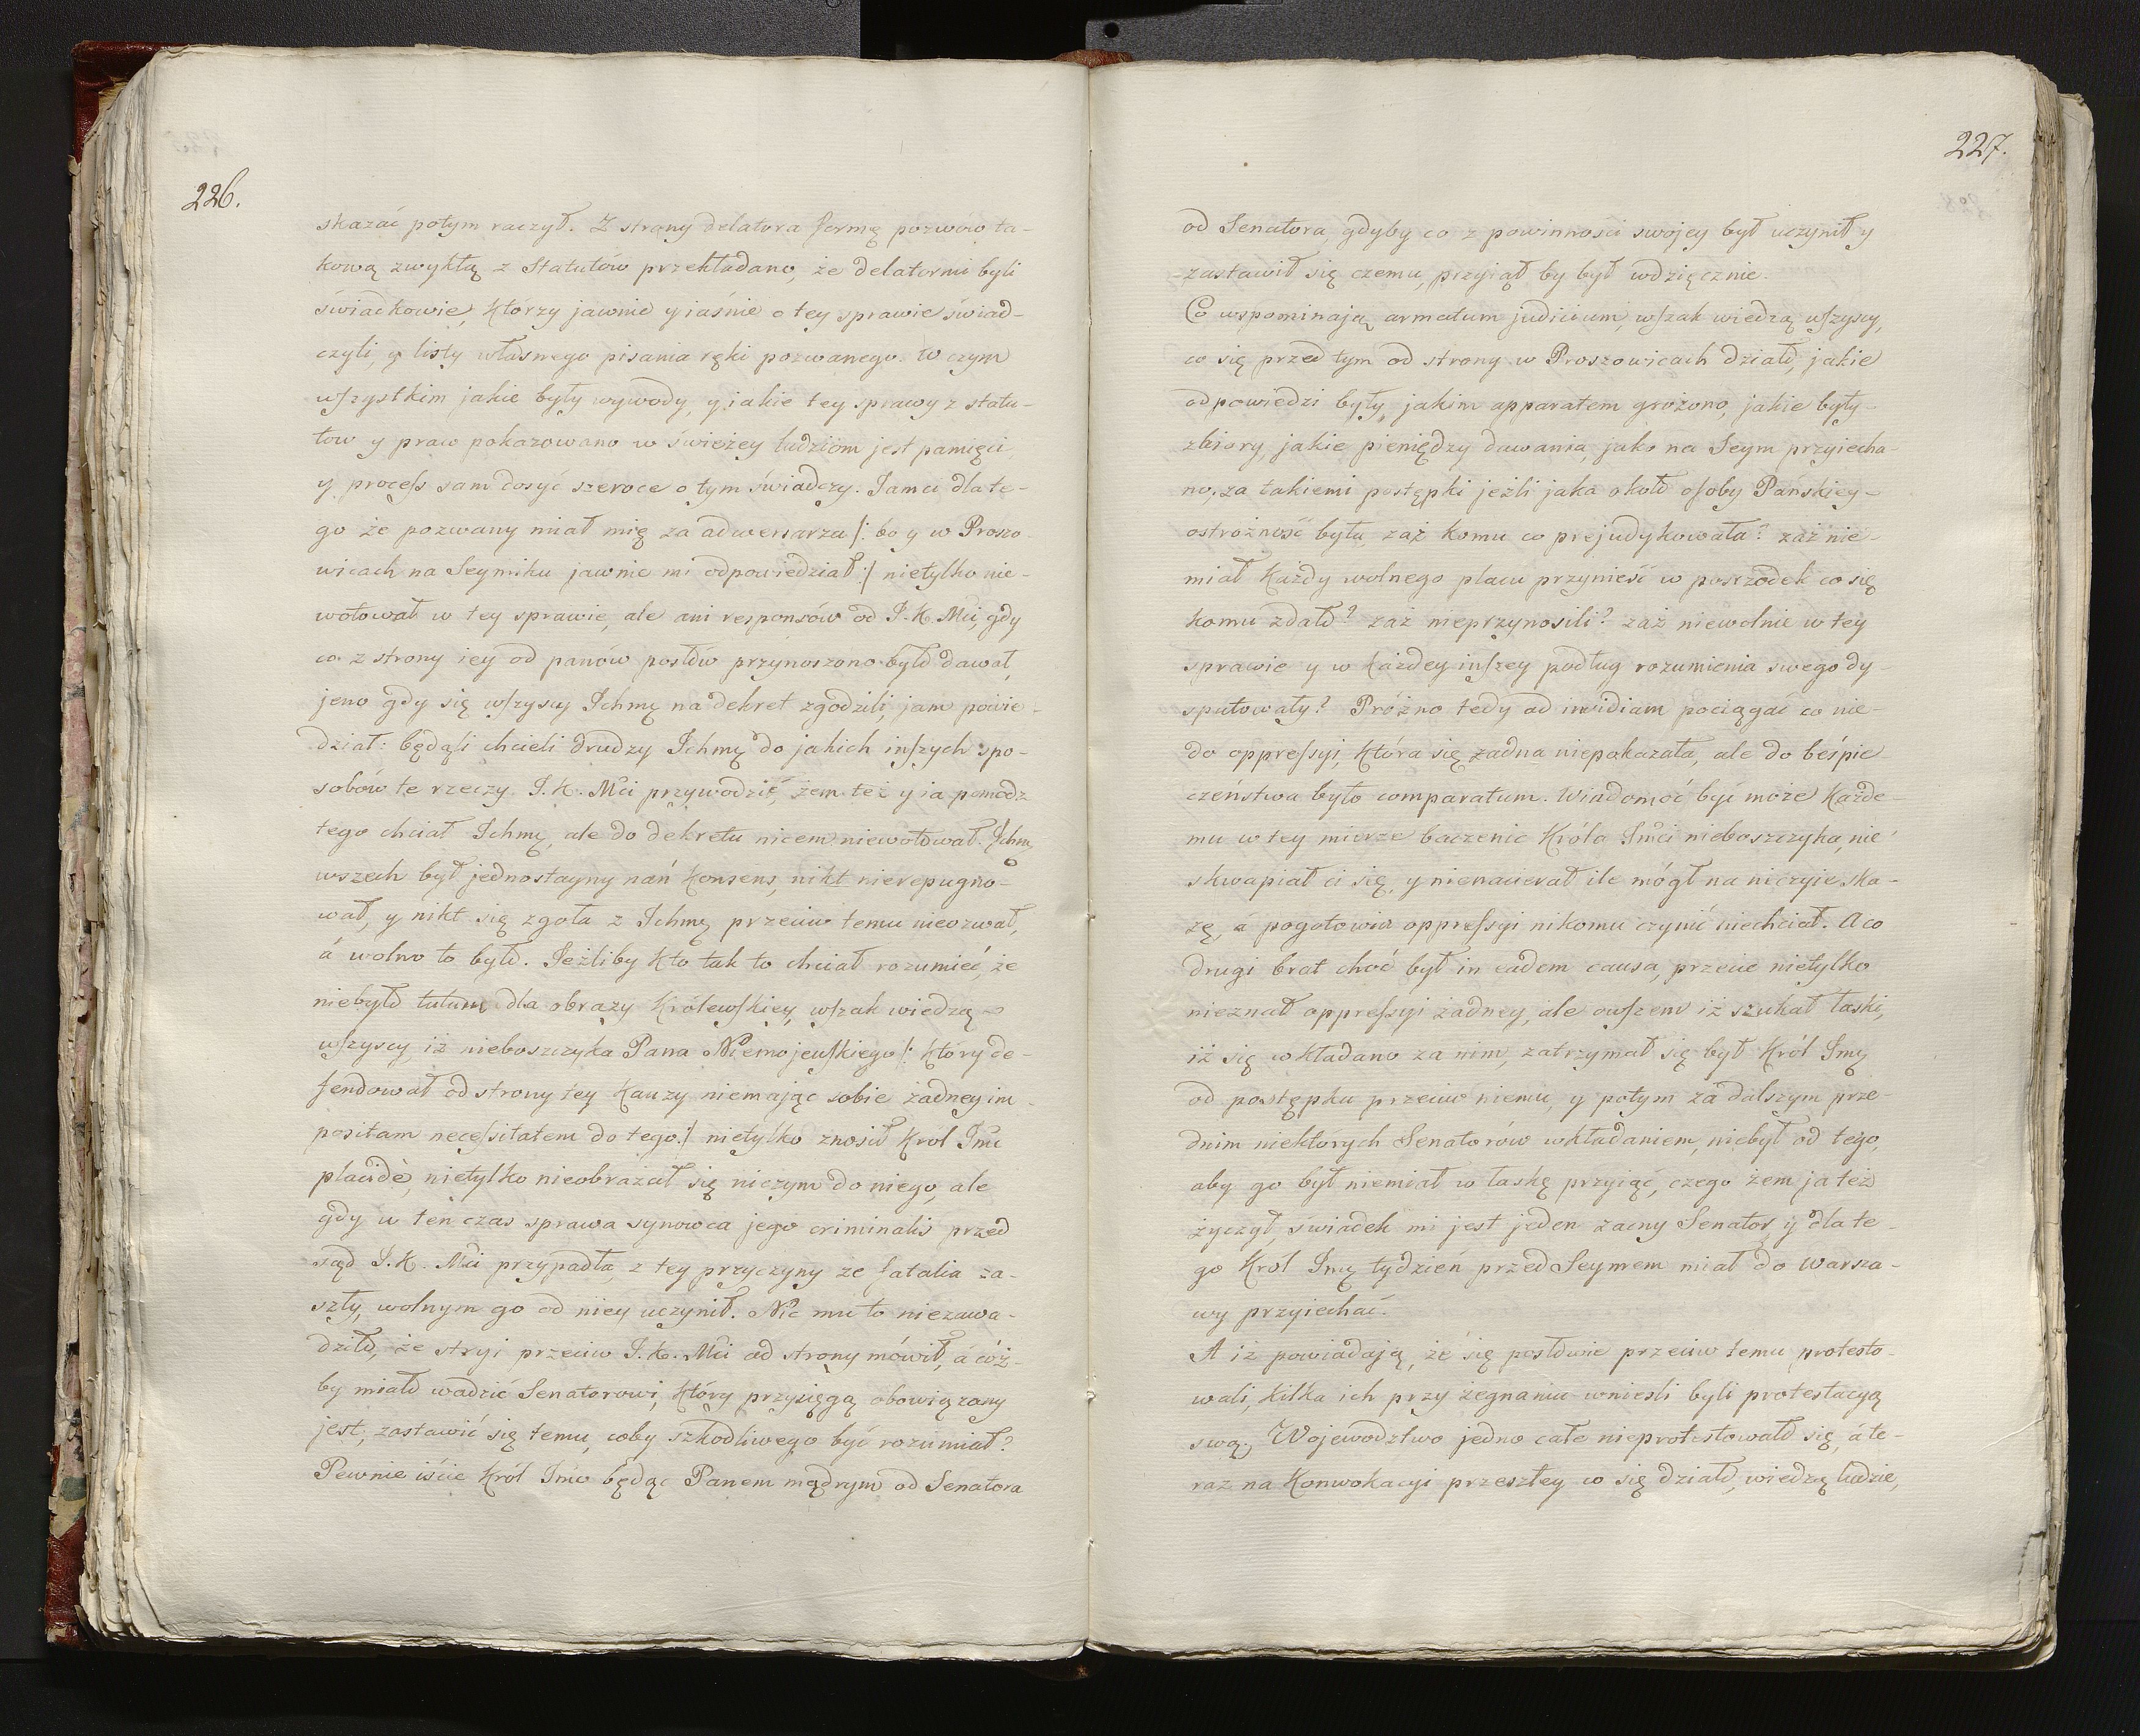 226.
skazać potym raczył. Z strony delatora formę pozwów ta-
kową zwykłą z Statutów przekładano, że delatorni byli
świadkowie, którzy jawnie y iaśnie o tey sprawie świad-
czyli, y listy własnego pisania ręki pozwanego. W czym
wſzystkim jakie były wywody, y jakie tey sprawy z statu-
tow y praw pokazowano w świeżey ludziom jest pamięci,
y proceſs sam dosyć szeroce o tym świadczy. Jamci dlate-
go że pozwany miał mię za adwersarza /: bo y w Proszo-
wicach na Seymiku jawnie mi odpowiedział :/ nietylko nie-
wotował w tey sprawie, ale ani responsów od J. K. Mći, gdy
co z strony iey od panów posłów przynoszono było dawał,
jeno gdy się wſzyscy Ichmę na dekret zgodzili, jam powie-
dział: będąli chcieli drudzy Ichmę do jakich inſzych spo-
sobów te rzeczy J. K. Mći przywodzić, żem też y ia pomodz
tego chciał Ichmę, ale do dekretu nicem niewotował. Ichmę
wszech był jednostayny nań konsens, nikt nierepugno-
wał, y nikt się zgoła z Ichmę przeciw temu nieozwał,
á wolno to było. Jeżliby kto tak to chciał rozumieć, że
niebyło tutum dla obrazy Królewſkiey, wſzak wiedzą
wſzyscy, iż nieboszczyka Pana Niemojewſkiego /: który de-
fendował od strony tey kauzy niemając sobie żadney im-
positam neceſsitatem do tego :/ nietylko znosił Król Jmć
placidè, nietylko nieobrażał się niczym do niego, ale
gdy w ten czas sprawa synowca jego criminalis przed
sąd J. K. Mći przypadła, z tey przyczyny że fatalia za-
szły, wolnym go od niey uczynił. Nic mu to niezawa-
dziło, że stryi przeciw J. K. Mći od strony mówił, á cóż-
by miało wadzić Senatorowi, który przysięgą obowiązany
jest, zastawić się temu, coby szkodliwego być rozumiał?
Pewnie iście Król Jmć będąc Panem mądrym od Senatora
227.
od Senatora, gdyby co z powinności swojey był uczynił y
zastawił się czemu, przyiął by był wdzięcznie.
Co wspominają armatum judicium, wſzak wiedzą wſzyscy,
co się przed tym od strony w Proszowicach działo, jakie
odpowiedzi były, jakim apparatem grożono, jakie były
zbiory, jakie pieniędzy dawania, jako na Seym przyiecha-
no, za takiemi postępki jeżli jaka około oſoby Pańskiey
ostrożność była, zaż komu co prejudykowała? zaż nie-
miał każdy wolnego placu przynieść w poszrodek co się
komu zdało? zaż nieprzynosili? zaż niewolnie w tey
sprawie y w każdey inſzey podług rozumienia swego dy-
sputowały? Próżno tedy ad invidiam pociągać co nie-
do oppreſsyi, która się żadna niepokazała, ale do beśpie-
czeństwa było comparatum. Wiadomoć być może każde-
mu w tey mierze baczenie Króla Jmći nieboszczyka, nie
skwapiał ci się, y nienacierał ile mógł na niczyie ska-
zę, á pogotowiu oppreſsyi nikomu czynić niechciał. A co
drugi brat choć był in eadem causa, przecie nietylko
nieznał oppreſsyi żadney, ale owſzem iż szukał łaski,
iż się wkładano za nim, zatrzymał się był Król Jmę
od postępku przeciw niemu, y potym za dalszym prze-
dnim niektórych Senatorów wkładaniem, niebył od tego,
aby go był niemiał w łaskę przyiąć, czego żem ja też
życzył, świadek mi jest jeden zacny Senator, y dlate-
go Król Jmę tydzień przed Seymem miał do Warsza-
wy przyiechać.
A iż powiadają, że się posłowie przeciw temu protesto-
wali, kilka ich przy żegnaniu wnieśli byli protestacyą
swą, Województwo jedno całe nieprotestowało się, á te-
raz na Konwokacyi przeszłey co się działo, wiedzą ludzie,